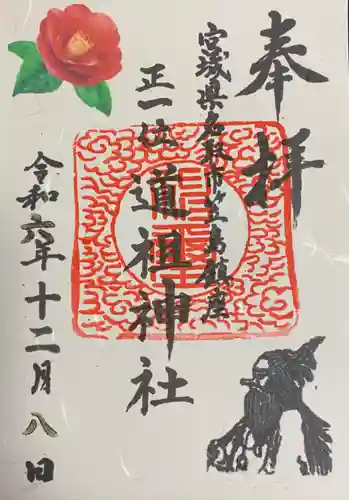 奉拝
宮城県名取市笠島鎮座
正一位
道祖神社
令和六年十二月八日